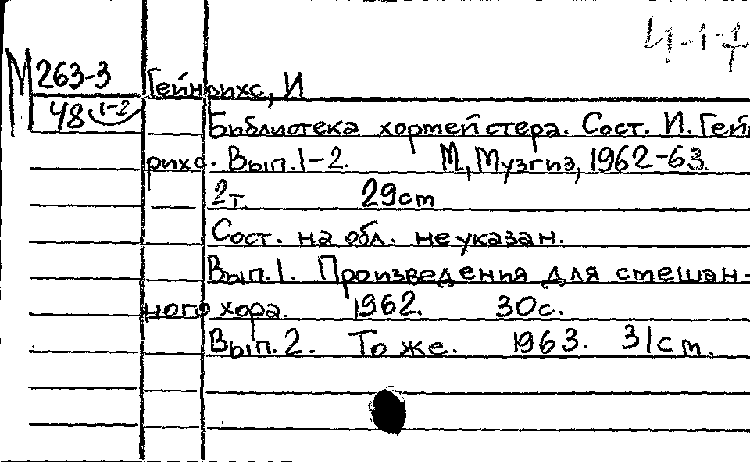 Ц-1-7
М 263-3
48 1-2
Гейнрихс, И
Библиотека хормейстера. Сост. И. Гейн
рихс. Вып.1-2. М, Музгиз, 1962-63.
2т. 29cm
Сост. на обл. не указан.
Вып.1. Произведения для смешан-
ного хора. 1962. 30с.
Вып.2. То же. 1963. 31ст.